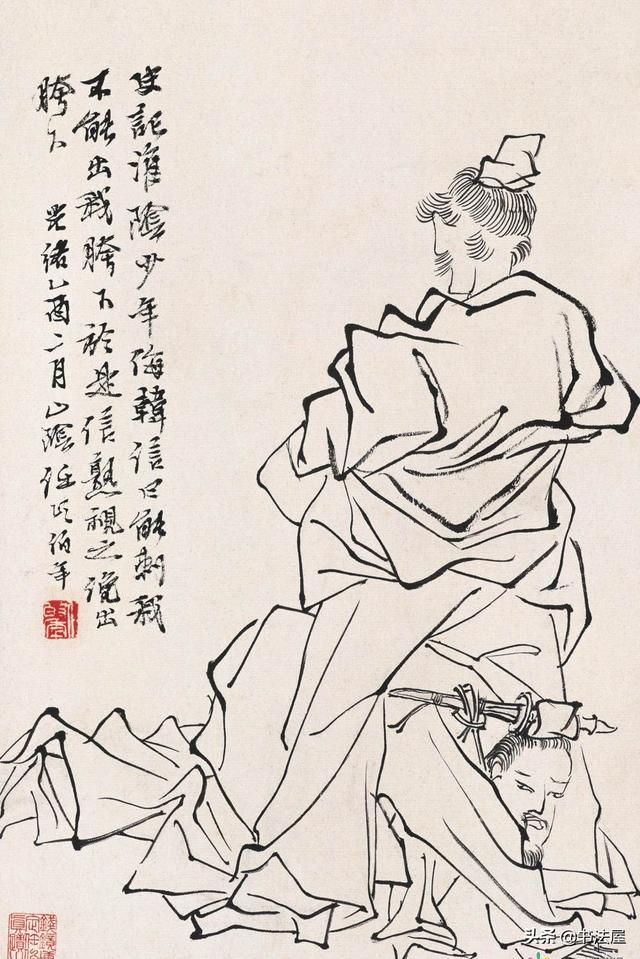 史記淮陰少年侮韓信曰能刺我
不能出我胯下於是信熟視之俛出
胯下 光緒乙酉二月山陰任頤伯年
头条 @书法屋